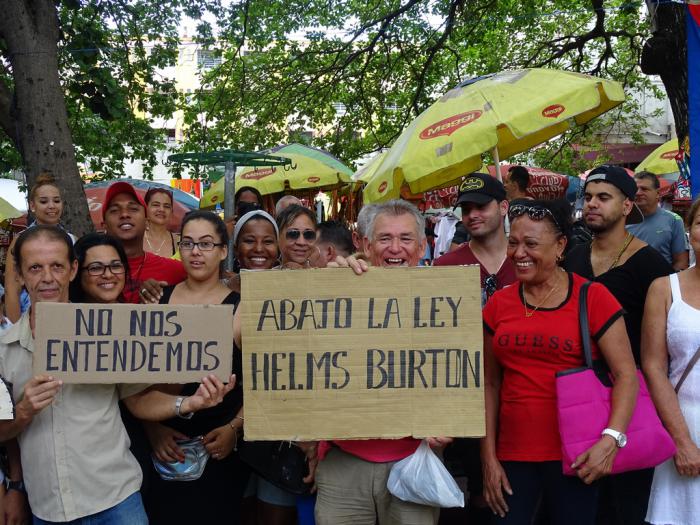 Maggi
Maggi
Maggi
Maggi
NO NOS
ENTENDEMOS
ABAJO LA LEY
HELMS BURTON
GUESS